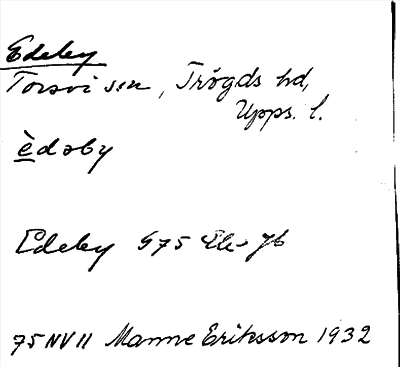 Edeby
Torsvi sn, Trögds hd,
Upps. l.
èdəby
Edeby G75 Ek- Jb
75 NV II Manne Eriksson 1932